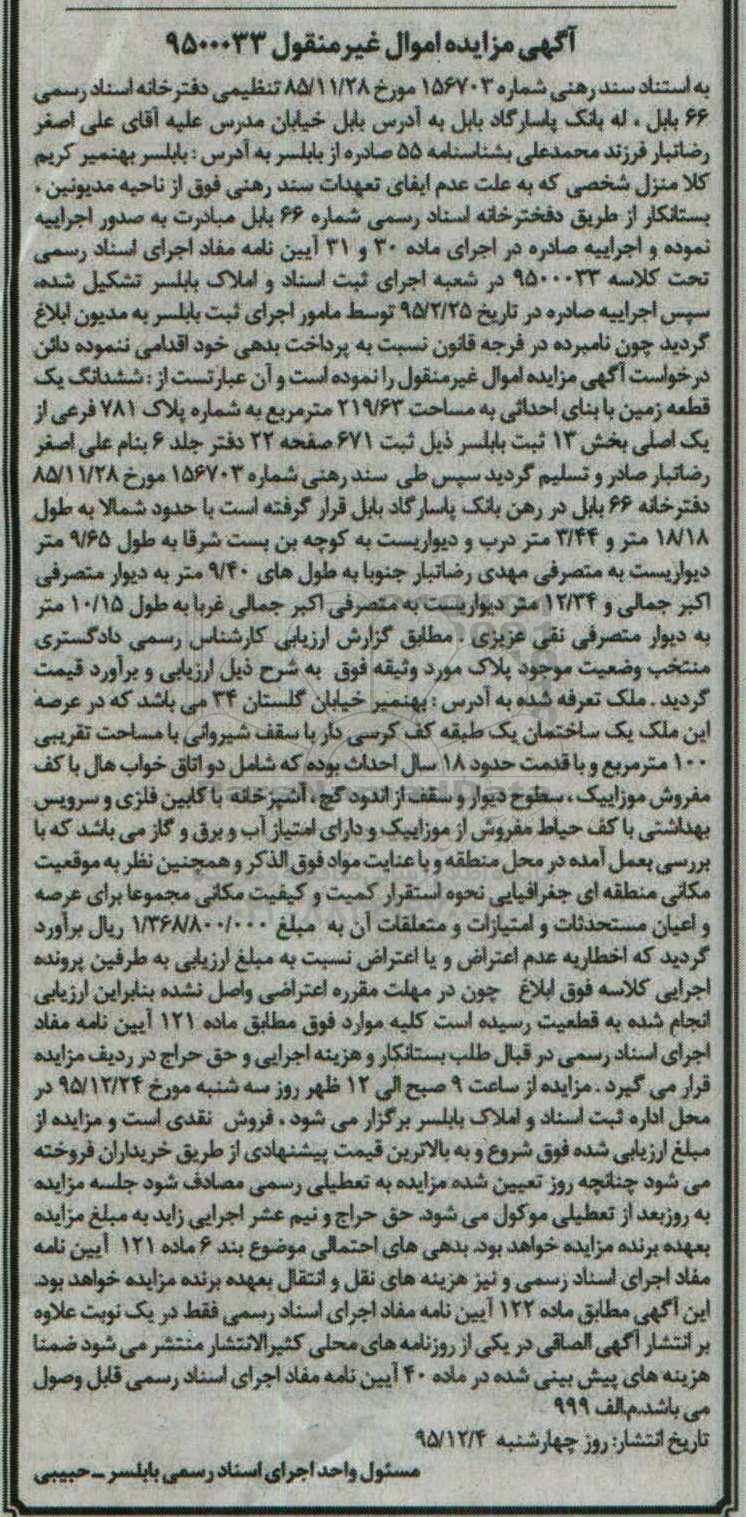 آگهی مزایده اموال غیرمنقول ۹۵۰۰۰۳۳
به استناد سند رهنی شماره ۱۵۶۷۰۳ مورخ ۸۵/۱۱/۲۸ تنظیمی دفترخانه اسناد رسمی
۶۶ بابل ، له بانک پاسارگاد بابل به آدرس بابل خیابان مدرس علیه آقای علی اصغر
رضاتبار فرزند محمدعلی بشناسنامه ۵۵ صادره از بابلسر به آدرس : بابلسر بهنمیر کریم
کلا منزل شخصی که به علت عدم ایفای تعهدات سند رهنی فوق از ناحیه مدیونین ،
بستانکار از طریق دفخترخانه اسناد رسمی شماره ۶۶ بابل مبادرت به صدور اجراییه
نموده و اجراییه صادره در اجرای ماده ۳۰ و ۳۱ آیین نامه مفاد اجرای اسناد رسمی
تحت کلاسه ۹۵۰۰۰۳۳ در شعبه اجرای ثبت اسناد و املاک بابلسر تشکیل شده،
سپس اجراییه صادره در تاریخ ۹۵/۲/۲۵ توسط مامور اجرای ثبت بابلسر به مدیون ابلاغ
گردید چون نامبرده در فرجه قانون نسبت به پرداخت بدهی خود اقدامی ننموده دائن
درخواست آگهی مزایده اموال غیرمنقول را نموده است و آن عبارتست از : ششدانگ یک
قطعه زمین با بنای احداثی به مساحت ۲۱۹/۶۳ مترمربع به شماره پلاک ۷۸۱ فرعی از
یک اصلی بخش ۱۳ ثبت بابلسر ذیل ثبت ۶۷۱ صفحه ۲۲ دفتر جلد ۶ بنام علی اصغر
رضاتبار صادر و تسلیم گردید سپس طی سند رهنی شماره ۱۵۶۷۰۳ مورخ ۸۵/۱۱/۲۸
دفترخانه ۶۶ بابل در رهن بانک پاسارگاد بابل قرار گرفته است با حدود شمالا به طول
۱۸/۱۸ متر و ۳/۴۴ متر درب و دیواریست به کوچه بن بست شرقا به طول ۹/۶۵ متر
دیواریست به متصرفی مهدی رضاتبار جنوبا به طول های ۹/۴۰ متر به دیوار متصرفی
اکبر جمالی و ۱۲/۳۴ متر دیواریست به متصرفی اکبر جمالی غربا به طول ۱۰/۱۵ متر
به دیوار متصرفی نقی عزیزی . مطابق گزارش ارزیابی کارشناس رسمی دادگستری
منتخب وضعیت موجود پلاک مورد وثیقه فوق به شرح ذیل ارزیابی و برآورد قیمت
گردید . ملک تعرفه شده به آدرس : بهنمیر خیابان گلستان ۳۴ می باشد که در عرصه
این ملک یک ساختمان یک طبقه کف کرسی دار با سقف شیروانی با مساحت تقریبی
۱۰۰ مترمربع و با قدمت حدود ۱۸ سال احداث بوده که شامل دو اتاق خواب هال با کف
مفروش موزاییک ، سطوح دیوار و سقف از اندود گچ ، آشپزخانه با کابین فلزی و سرویس
بهداشتی با کف حیاط مفروش از موزاییک و دارای امتیاز آب و برق و گاز می باشد که با
بررسی بعمل آمده در محل منطقه و با عنایت مواد فوق الذکر و همچنین نظر به موقعیت
مکانی منطقه ای جغرافیایی نحوه استقرار کمیت و کیفیت مکانی مجموعا برای عرصه
و اعیان مستحدثات و امتیازات و متعلقات آن به مبلغ ۱/۳۶۸/۸۰۰/۰۰۰ ریال برآورد
گردید که اخطاریه عدم اعتراض و یا اعتراض نسبت به مبلغ ارزیابی به طرفین پرونده
اجرایی کلاسه فوق ابلاغ چون در مهلت مقرره اعتراضی واصل نشده بنابراین ارزیابی
انجام شده به قطعیت رسیده است کلیه موارد فوق مطابق ماده ۱۲۱ آیین نامه مفاد
اجرای اسناد رسمی در قبال طلب بستانکار و هزینه اجرایی و حق حراج در ردیف مزایده
قرار می گیرد . مزایده از ساعت ۹ صبح الی ۱۲ ظهر روز سه شنبه مورخ ۹۵/۱۲/۲۴ در
محل اداره ثبت اسناد و املاک بابلسر برگزار می شود ، فروش نقدی است و مزایده از
مبلغ ارزیابی شده فوق شروع و به بالاترین قیمت پیشنهادی از طریق خریداران فروخته
می شود چنانچه روز تعیین شده مزایده به تعطیلی رسمی مصادف شود جلسه مزایده
به روزبعد از تعطیلی موکول می شود. حق حراج و نیم عشر اجرایی زاید به مبلغ مزایده
بعهده برنده مزایده خواهد بود. بدهی های احتمالی موضوع بند ۶ ماده ۱۲۱ آیین نامه
مفاد اجرای اسناد رسمی و نیز هزینه های نقل و انتقال بعهده برنده مزایده خواهد بود.
این آگهی مطابق ماده ۱۲۲ آیین نامه مفاد اجرای اسناد رسمی فقط در یک نوبت علاوه
بر انتشار آگهی الصاقی در یکی از روزنامه های محلی کثیرالانتشار منتشر می شود ضمنا
هزینه های پیش بینی شده در ماده ۴۰ آیین نامه مفاد اجرای اسناد رسمی قابل وصول
می باشد.م.الف ۹۹۹
تاریخ انتشار: روز چهارشنبه ۹۵/۱۲/۴
مسئول واحد اجرای اسناد رسمی بابلسر ـ حبیبی